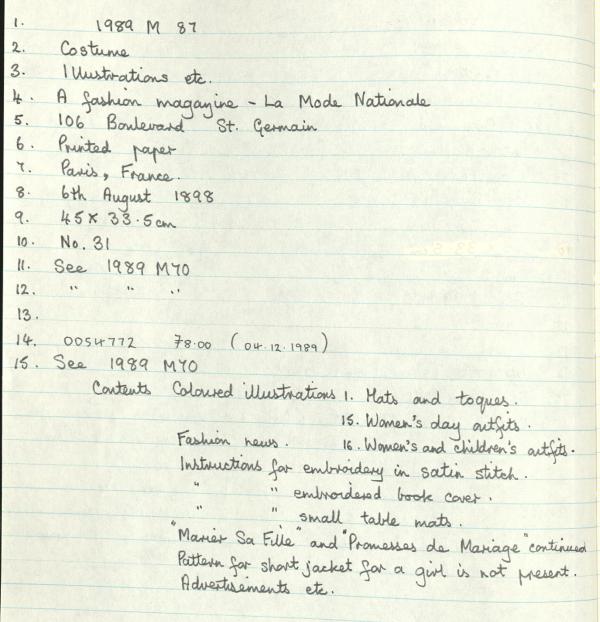 1. 1989 M 87
2. Costume
3. Illustrations etc.
4. A fashion magazine - La Mode Nationale
5. 106 Boulevard St. Germain
6. Printed paper
7. Paris, France.
8. 6th August 1898
9. 45 x 33.5cm
10. No. 31
11. See 1989 M70
12. " " "
13.
14. 0054772 78.00 (04.12.1989)
15. See 1989 M70
Contents Coloured illustrations 1. Hats and toques.
15. Women's day outfits.
Fashion news. 16. Women's and children's outfits.
Instructions for embroidery in satin stitch.
" " embroidered book cover.
" " small table mats.
"Marier Sa Fille" and "Promesses de Mariage" continued
Pattern for short jacket for a girl is not present.
Advertisements etc.